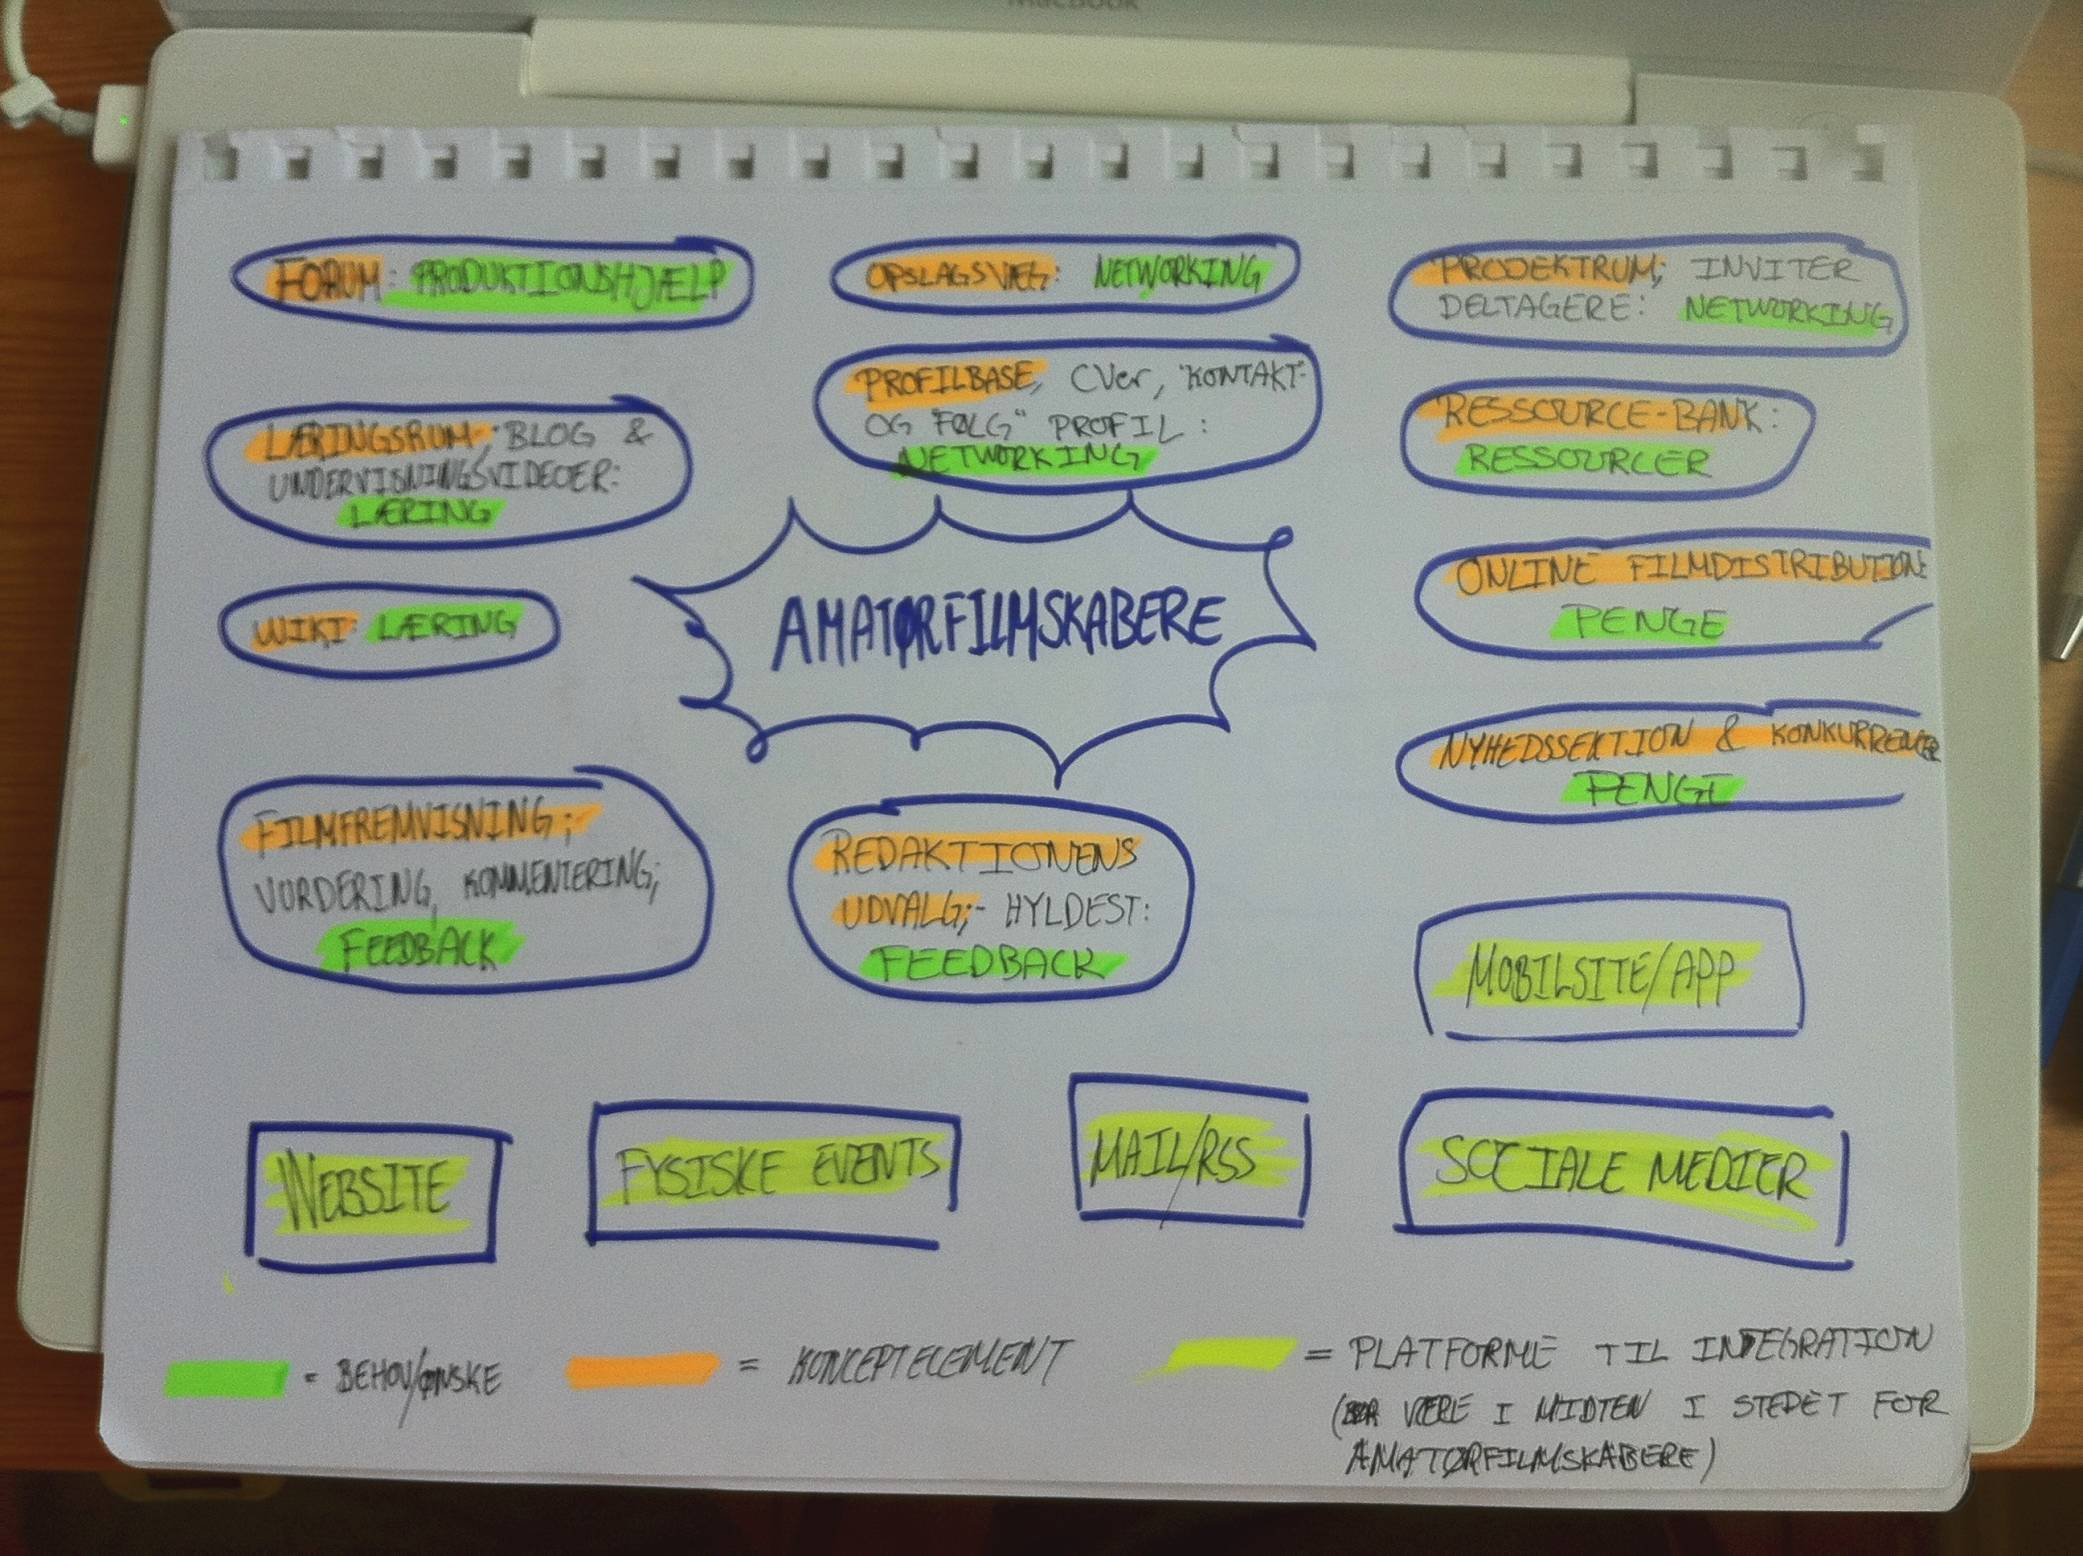 MacBook
FORUM: PRODUKTIONSHJÆLP
OPSLAGSVÆG: NETWORKING
PROJEKTRUM; INVITER
DELTAGERE: NETWORKING
PROFILBASE, CVer, "KONTAKT"
OG "FØLG" PROFIL:
NETWORKING
LÆRINGSRUM; BLOG &
UNDERVISNINGSVIDEOER:
LÆRING
RESSOURCE-BANK:
RESSOURCER
WIKI: LÆRING
AMATØRFILMSKABERE
ONLINE FILMDISTRIBUTION:
PENGE
NYHEDSSEKTION & KONKURRENCER
PENGE
FILMFREMVISNING;
VURDERING, KOMMENTERING;
FEEDBACK
REDAKTIONENS
UDVALG;- HYLDEST:
FEEDBACK
MOBILSITE/APP
WEBSITE
FYSISKE EVENTS
MAIL/RSS
SOCIALE MEDIER
= BEHOV/ØNSKE
= KONCEPTELEMENT
= PLATFORME TIL INTEGRATION
(BØR VÆRE I MIDTEN I STEDET FOR
AMATØRFILMSKABERE)